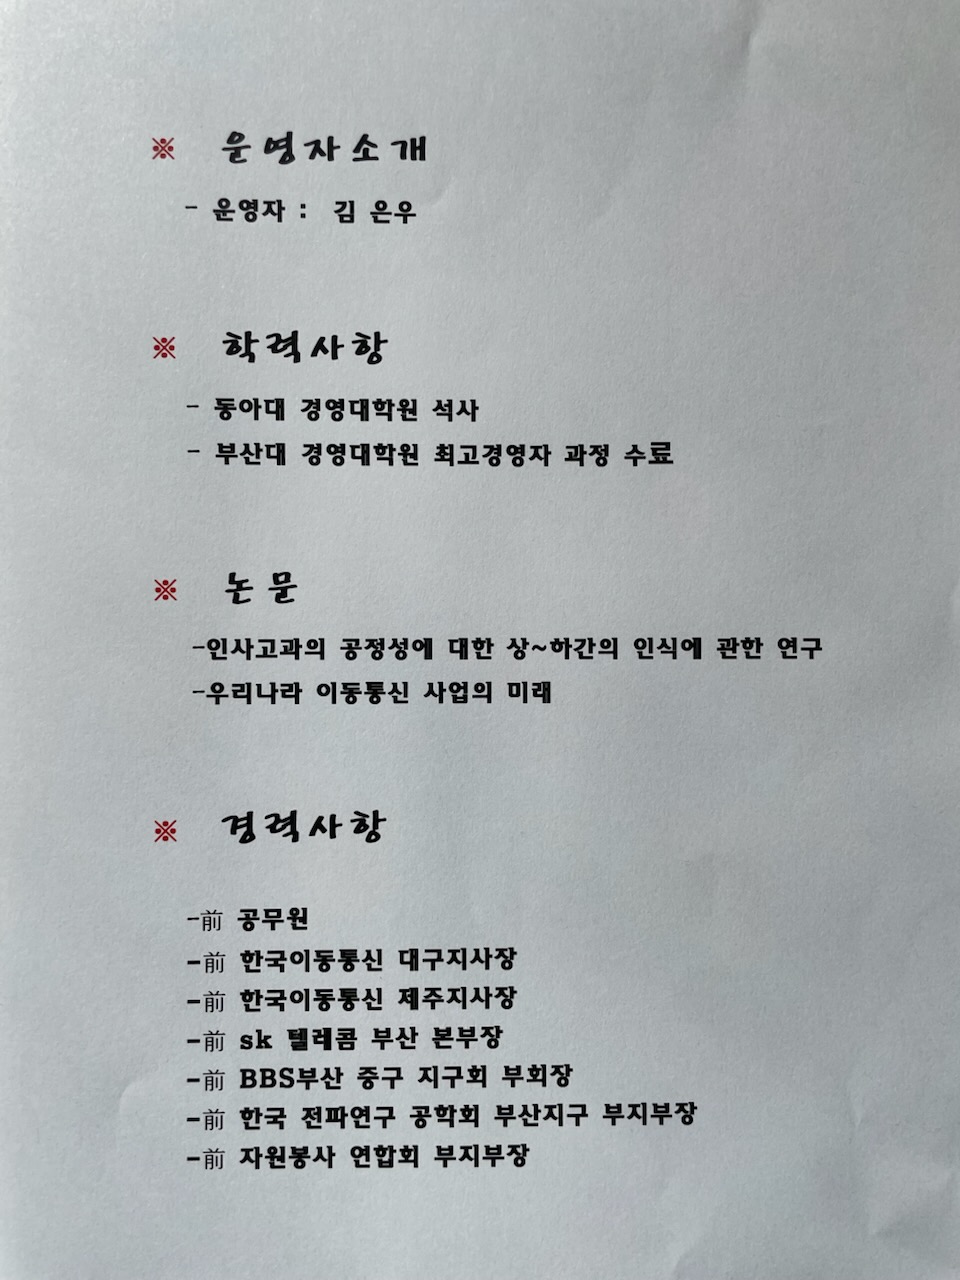 ※ 운영자소개
- 운영자 : 김 은우
※ 학력사항
- 동아대 경영대학원 석사
- 부산대 경영대학원 최고경영자 과정 수료
※ 논문
-인사고과의 공정성에 대한 상~하간의 인식에 관한 연구
-우리나라 이동통신 사업의 미래
※ 경력사항
-前 공무원
-前 한국이동통신 대구지사장
-前 한국이동통신 제주지사장
-前 sk 텔레콤 부산 본부장
-前 BBS부산 중구 지구회 부회장
-前 한국 전파연구 공학회 부산지구 부지부장
-前 자원봉사 연합회 부지부장